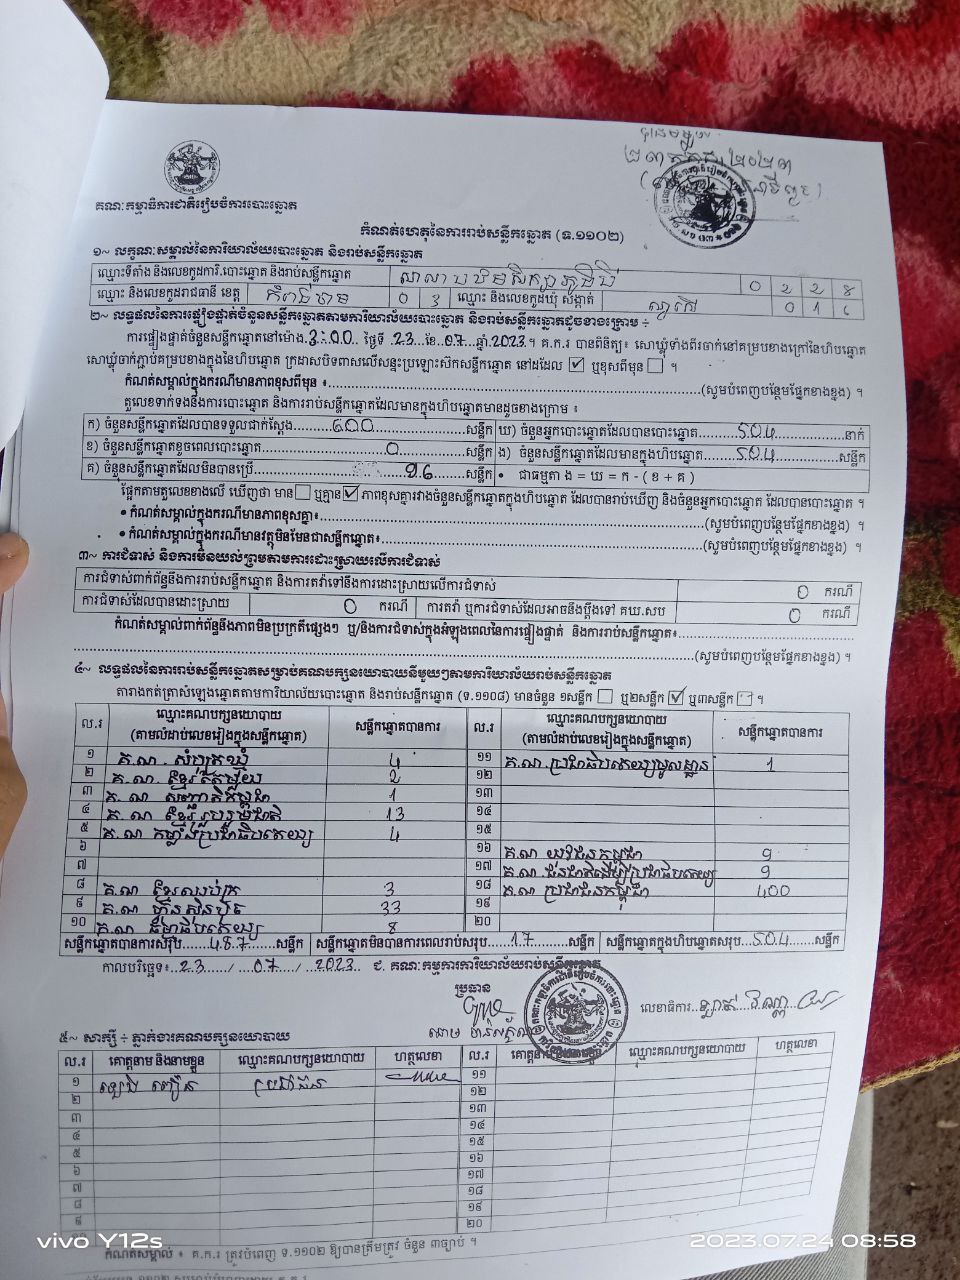 គណៈកម្មាធិការជាតិរៀបចំការបោះឆ្នោត
កំណត់ហេតុនៃការរាប់សន្លឹកឆ្នោត (ទ.១១០២)
១~ លក្ខណៈសម្គាល់នៃការិយាល័យបោះឆ្នោត និងរាប់សន្លឹកឆ្នោត
ឈ្មោះទីតាំង និងលេខកូដការិ.បោះឆ្នោត និងរាប់សន្លឹកឆ្នោត សាលាបឋមសិក្សាភូមិ 0 2 2 8
ឈ្មោះ និងលេខកូដរាជធានី ខេត្ត កំពង់ចាម 0 3 ឈ្មោះ និងលេខកូដឃុំ សង្កាត់ 0 1
២~ លទ្ធផលនៃការផ្ទៀងផ្ទាត់ចំនួនសន្លឹកឆ្នោតតាមការិយាល័យបោះឆ្នោត និងរាប់សន្លឹកឆ្នោតដូចខាងក្រោម ÷
ការផ្ទៀងផ្ទាត់ចំនួនសន្លឹកឆ្នោតនៅម៉ោង.3:00.. ថ្ងៃទី .23...ខែ.07...ឆ្នាំ.2023.។ គ.ក.រ បានពិនិត្យ៖ សោឃ្លុំទាំងពីរចាក់នៅគម្របខាងក្រៅនៃហិបឆ្នោត
សោឃ្លុំចាក់ភ្ជាប់គម្របខាងក្នុងនៃហិបឆ្នោត ក្រដាសបិទពាសលើសន្ទះប្រឡោះស៊កសន្លឹកឆ្នោត នៅដដែល ☑ ឬខុសពីមុន ☐ ។
កំណត់សម្គាល់ក្នុងករណីមានភាពខុសពីមុន ៖.....(សូមបំពេញបន្ថែមផ្នែកខាងខ្នង) ។
តួលេខទាក់ទងនឹងការបោះឆ្នោត និងការរាប់សន្លឹកឆ្នោតដែលមានក្នុងហិបឆ្នោតមានដូចខាងក្រោម ៖
ក) ចំនួនសន្លឹកឆ្នោតដែលបានទទួលជាក់ស្ដែង.....600.....សន្លឹក ឃ) ចំនួនអ្នកបោះឆ្នោតដែលបានបោះឆ្នោត.....504.....នាក់
ខ) ចំនួនសន្លឹកឆ្នោតខូចពេលបោះឆ្នោត.....0.....សន្លឹក ង) ចំនួនសន្លឹកឆ្នោតដែលមានក្នុងហិបឆ្នោត.....504.....សន្លឹក
គ) ចំនួនសន្លឹកឆ្នោតដែលមិនបានប្រើ.....96.....សន្លឹក • ជាធម្មតា ង = ឃ = ក - ( ខ + គ )
ផ្អែកតាមតួលេខខាងលើ ឃើញថា មាន ☐ ឬគ្មាន ☑ ភាពខុសគ្នារវាងចំនួនសន្លឹកឆ្នោតក្នុងហិបឆ្នោត ដែលបានរាប់ឃើញ និងចំនួនអ្នកបោះឆ្នោត ដែលបានបោះឆ្នោត ។
• កំណត់សម្គាល់ក្នុងករណីមានភាពខុសគ្នា៖.....(សូមបំពេញបន្ថែមផ្នែកខាងខ្នង) ។
• កំណត់សម្គាល់ក្នុងករណីមានវត្ថុមិនមែនជាសន្លឹកឆ្នោត៖.....(សូមបំពេញបន្ថែមផ្នែកខាងខ្នង) ។
៣~ ការជំទាស់ និងការមិនយល់ព្រមតាមការដោះស្រាយលើការជំទាស់
ការជំទាស់ពាក់ព័ន្ធនឹងការរាប់សន្លឹកឆ្នោត និងការតវ៉ាទៅនឹងការដោះស្រាយលើការជំទាស់ 0 ករណី
ការជំទាស់ដែលបានដោះស្រាយ 0 ករណី ការតវ៉ា ឬការជំទាស់ដែលអាចនឹងប្ដឹងទៅ គឃ.សប 0 ករណី
កំណត់សម្គាល់ពាក់ព័ន្ធនឹងភាពមិនប្រក្រតីផ្សេងៗ ឬ/និងការជំទាស់ក្នុងអំឡុងពេលនៃការផ្ទៀងផ្ទាត់ និងការរាប់សន្លឹកឆ្នោត៖.....
.....(សូមបំពេញបន្ថែមផ្នែកខាងខ្នង) ។
៤~ លទ្ធផលនៃការរាប់សន្លឹកឆ្នោតសម្រាប់គណបក្សនយោបាយនីមួយៗតាមការិយាល័យរាប់សន្លឹកឆ្នោត
តារាងកត់ត្រាសំឡេងឆ្នោតតាមការិយាល័យបោះឆ្នោត និងរាប់សន្លឹកឆ្នោត (ទ.១១០៨) មានចំនួន ១សន្លឹក ☐ ឬ២សន្លឹក ☑ ឬ៣សន្លឹក ☐ ។
ល.រ ឈ្មោះគណបក្សនយោបាយ (តាមលំដាប់លេខរៀងក្នុងសន្លឹកឆ្នោត) សន្លឹកឆ្នោតបានការ ល.រ ឈ្មោះគណបក្សនយោបាយ (តាមលំដាប់លេខរៀងក្នុងសន្លឹកឆ្នោត) សន្លឹកឆ្នោតបានការ
១ គ.ណ. សំបុកឃ្មុំ 4 ១១ គ.ណ.ប្រជាធិបតេយ្យមូលដ្ឋាន 1
២ គ.ណ. ខ្មែរតែមួយ 2 ១២
៣ គ.ណ សញ្ជាតិកម្ពុជា 1 ១៣
៤ គ.ណ ខ្មែររួបរួមជាតិ 13 ១៤
៥ គ.ណ កម្លាំងប្រជាធិបតេយ្យ 4 ១៥
៦ ១៦ គ.ណ យុវជនកម្ពុជា 9
៧ ១៧ គ.ណ.ជនជាតិដើមប្រជាធិបតេយ្យ 9
៨ គ.ណ ខ្មែរឈប់ក្រ 3 ១៨ គ.ណ ប្រជាជនកម្ពុជា 400
៩ គ.ណ ហ៊្វុនស៊ិនប៉ិច 33 ១៩
១០ គ.ណ ធម្មាធិបតេយ្យ 8 ២០
សន្លឹកឆ្នោតបានការសរុប.....487.....សន្លឹក សន្លឹកឆ្នោតមិនបានការពេលរាប់សរុប.....17.....សន្លឹក សន្លឹកឆ្នោតក្នុងហិបឆ្នោតសរុប...504.....សន្លឹក
កាលបរិច្ឆេទ៖..23...../...07..../...2023.. ជ. គណៈកម្មការការិយាល័យរាប់សន្លឹកឆ្នោត
ប្រធាន
លេខាធិការ
៥~ សាក្សី ÷ ភ្នាក់ងារគណបក្សនយោបាយ
ល.រ គោត្តនាម និងនាមខ្លួន ឈ្មោះគណបក្សនយោបាយ ហត្ថលេខា ល.រ គោត្តនាម និងនាមខ្លួន ឈ្មោះគណបក្សនយោបាយ ហត្ថលេខា
១ ប្រជាជន ១១
២ ១២
៣ ១៣
៤ ១៤
៥ ១៥
៦ ១៦
៧ ១៧
៨ ១៨
៩ ១៩
២០
កំណត់សម្គាល់ ៖ គ.ក.រ ត្រូវបំពេញ ទ.១១០២ ឱ្យបានត្រឹមត្រូវ ចំនួន ៣ច្បាប់ ។
vivo Y12s
2023.07.24 08:58